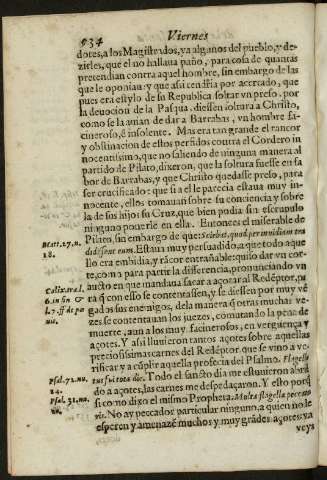 934 Viernes
dotes, a los Magistrados, ya algunos del pueblo, y de-
zirles, que el no hallaua paño, para cosa de quantas
pretendian contra aquel hombre, sin embargo de las
que le oponian: y que assi tendria por acertado, que
pues era estylo de su Republica soltar vn preso, por
la deuocion de la Pasqua, diessen soltura a Christo,
como se la auian de dar a Barrabas, vn hombre fa-
cineroso, è insolente. Mas era tan grande el rancor
y obstinacion de estos perfidos contra el Cordero in
nocentissimo, que no saliendo de ninguna manera al
partido de Pilato, dixeron, que la soltura fuesse en fa
bor de Barrabas, y que Christo quedasse preso, para
ser crucificado: que si a el le parecia estaua muy in-
nocente, ellos tomauan sobre su conciencia y sobre
la de sus hijos su Cruz, que bien pudia sin escrupulo
ninguno ponerle en ella. Entonces el miserable de
Pilato, sin embargo de que sciebat, quod per inuidiam tra
didissent eum. Estaua muy persuadido, a que todo aque
llo era embidia, y rācor entrañable: quiso dar vn cor-
te, como para partir la differencia, pronunciando vn
aucto en que mandaua sacar a açotar al Redéptor, pa
ra q̃ con esso se contentassen, y se diessen por muy vẽ
gados sus enemigos, dela manera q̃ otras muchas ve-
zes se contentauan los juezes, comutando la pena de
muerte, aun a los muy facinerosos, en verguença y
açotes. Y assi lluuieron tantos açotes sobre aquellas
preciosissimas carnes del Redẽptor, que se vino a ve-
rificar y a cũplir aquella profecia del Psalmo. Flagella
tus fui tota die. Todo el sancto dia me estuuieron abrié
do a açotes, las carnes me despedaçaron. Y esto porq̃
si como dixo el mismo Propheta. Multa flagella peccato
ris. No ay peccador particular ninguno, a quien no le
esperen y amenazẽ muchos y muy grãdes açotes: ya
veys
Matt. 27. n.
18.
6. in fin &
Psal. 72. nu.
14.
Psal. 31. nu.